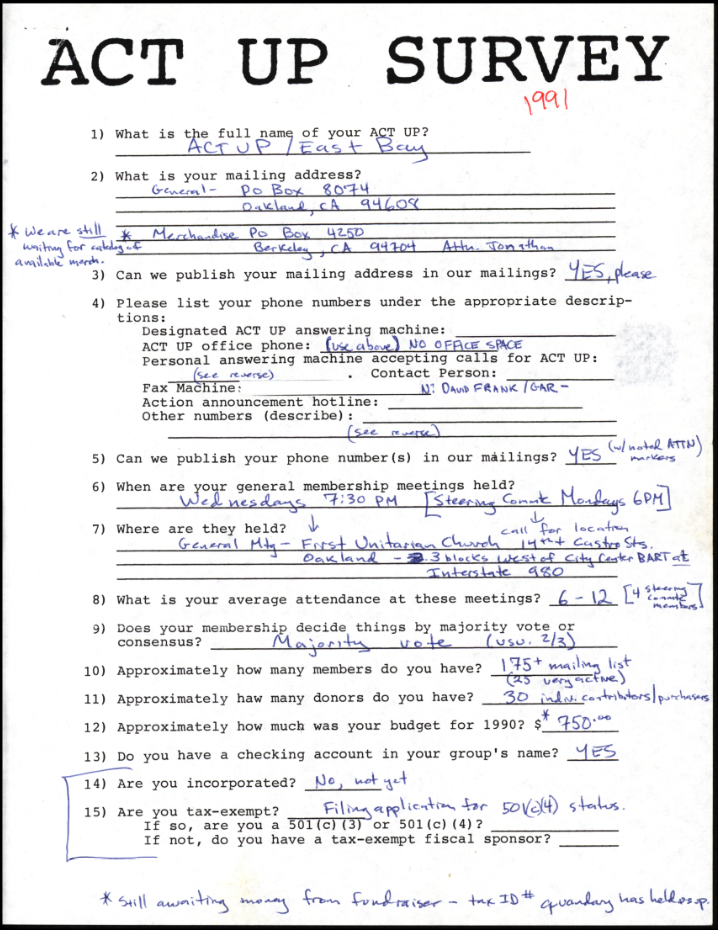 ACT UP SURVEY
1991
1) What is the full name of your ACT UP?
ACT UP / East Bay
2) What is your mailing address?
General - PO Box 8074
Oakland, CA 94608
* We are still waiting for catalog of available merch.
* Merchandise PO Box 4250
Berkeley, CA 94704 Attn. Jonathan
3) Can we publish your mailing address in our mailings? YES, please
4) Please list your phone numbers under the appropriate descrip-
tions:
Designated ACT UP answering machine:
ACT UP office phone: (use above) NO OFFICE SPACE
Personal answering machine accepting calls for ACT UP:
(see reverse) . Contact Person:
Fax Machine: N: DAVID FRANK / GAR -
Action announcement hotline:
Other numbers (describe):
(see reverse)
5) Can we publish your phone number(s) in our mailings? YES (w/ noted ATTN) markers
6) When are your general membership meetings held?
Wednesdays 7:30 PM [Steering Commt Mondays 6PM]
7) Where are they held? ↓ call ↓ for location
General Mtg - First Unitarian Church 14th + Castro Sts.
Oakland - 3 blocks west of City Center BART at
Interstate 980
8) What is your average attendance at these meetings? 6 - 12 [4 steering commt members]
9) Does your membership decide things by majority vote or
consensus? Majority vote (usu. 2/3)
10) Approximately how many members do you have? 175+ mailing list
(25 very active)
11) Approximately haw many donors do you have? 30 indiv. contributors/purchasers
12) Approximately how much was your budget for 1990? $* 750.00
13) Do you have a checking account in your group's name? YES
14) Are you incorporated? No, not yet
15) Are you tax-exempt? Filing application for 501(c)(4) status.
If so, are you a 501(c)(3) or 501(c)(4)?
If not, do you have a tax-exempt fiscal sponsor?
* Still awaiting money from fundraiser - tax ID # quandary has held us up.